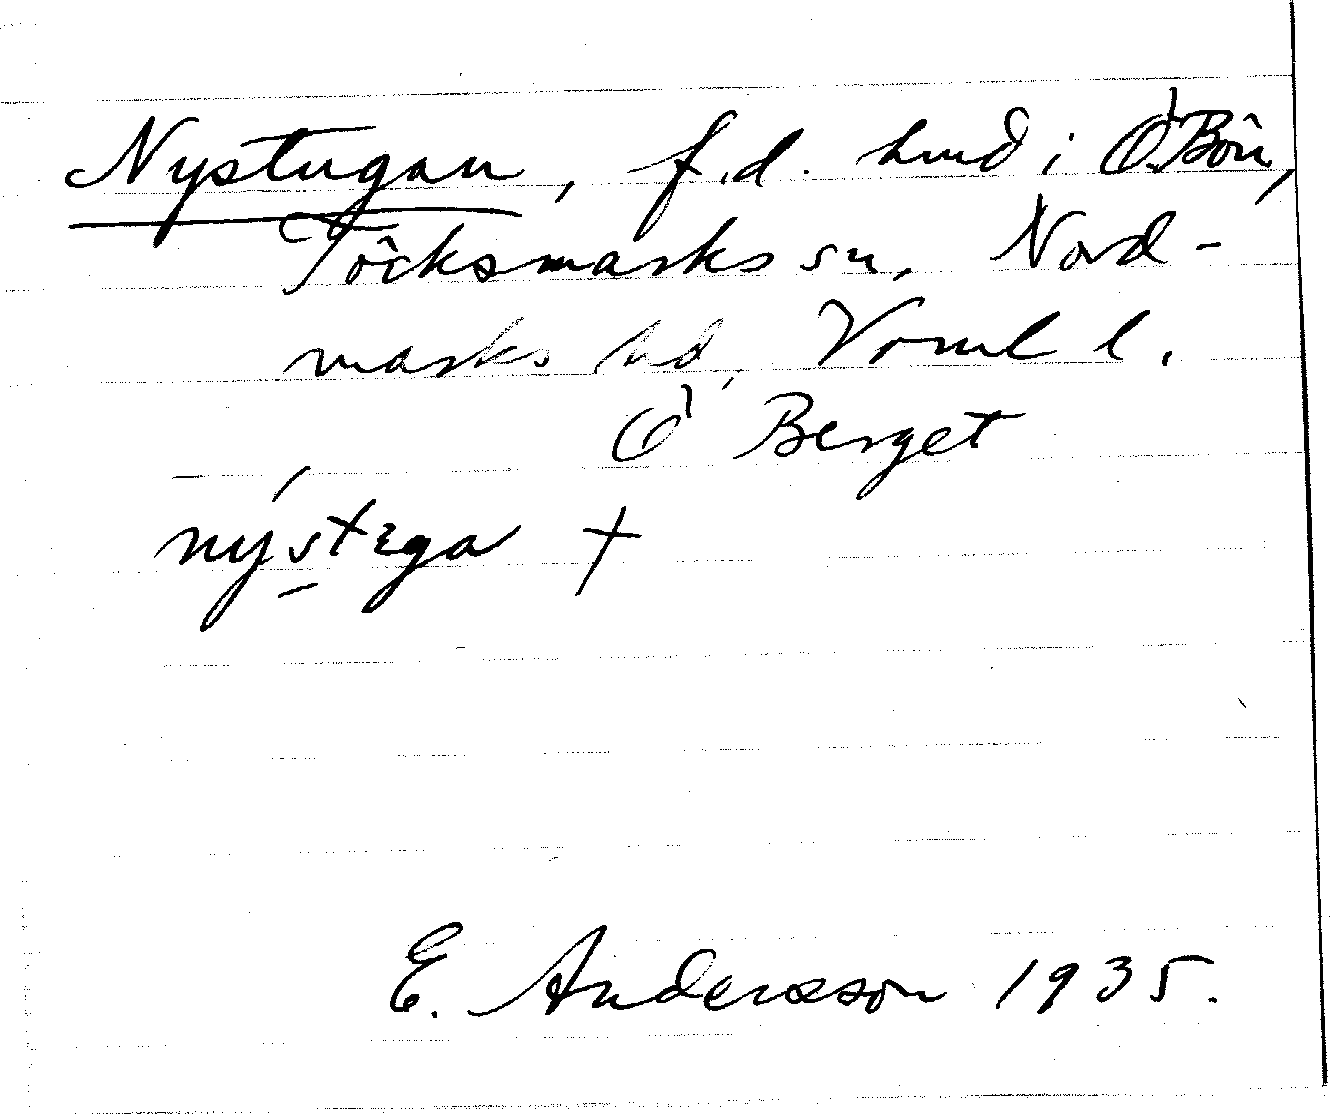 Nystugan, f.d. hmd i Ö Bön,
Töcksmarks sn, Nord-
marks hd, Värml l.
Ö Berget
nystega +
E. Andersson 1935.